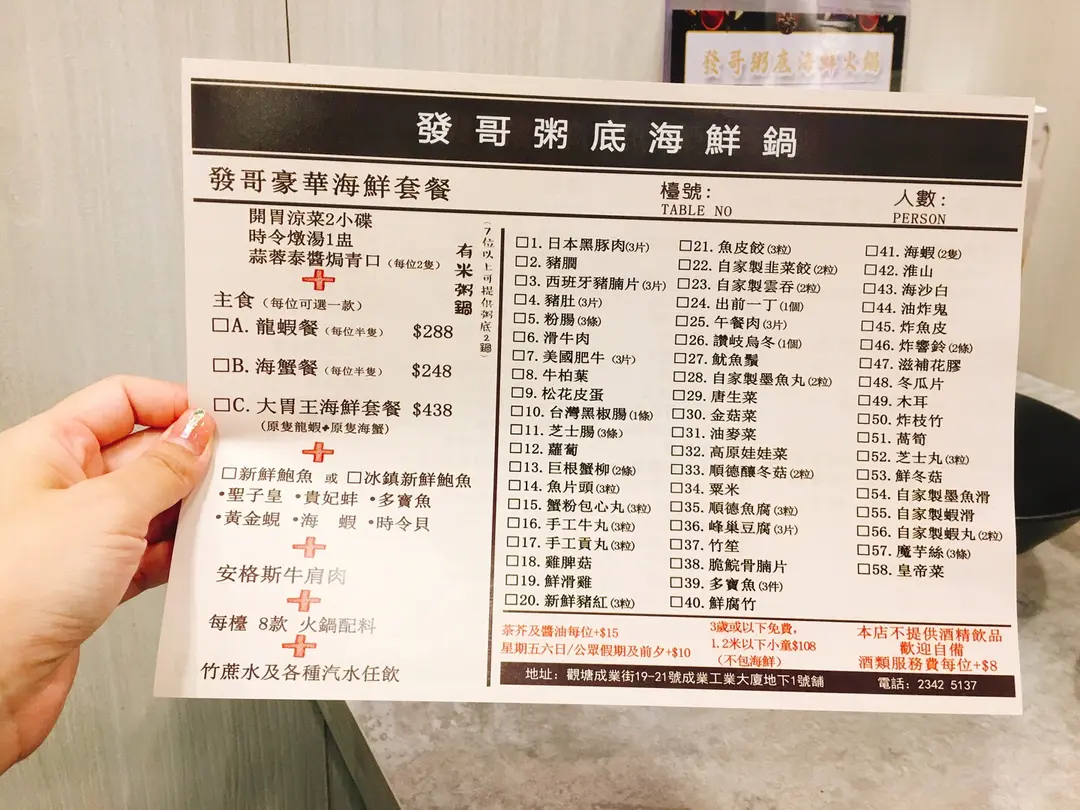 發哥粥底海鮮火鍋
發哥粥底海鮮鍋
發哥豪華海鮮套餐
檯號:
TABLE NO
人數:
PERSON
開胃涼菜2小碟
時令燉湯1盅
蒜蓉泰醬焗青口(每位2隻)
有米粥鍋
(7位以上可提供粥底2鍋)
主食(每位可選一款)
□A. 龍蝦餐(每位半隻) $288
□B. 海蟹餐(每位半隻) $248
□C. 大胃王海鮮套餐 $438
(原隻龍蝦+原隻海蟹)
□新鮮鮑魚 或 □冰鎮新鮮鮑魚
•聖子皇 •貴妃蚌 •多寶魚
•黃金蜆 •海 蝦 •時令貝
安格斯牛肩肉
每檯 8款 火鍋配料
竹蔗水及各種汽水任飲
□1. 日本黑豚肉(3片)
□2. 豬膶
□3. 西班牙豬腩片(3片)
□4. 豬肚(3片)
□5. 粉腸(3條)
□6. 滑牛肉
□7. 美國肥牛 (3片)
□8. 牛柏葉
□9. 松花皮蛋
□10. 台灣黑椒腸(1條)
□11. 芝士腸(3條)
□12. 蘿蔔
□13. 巨根蟹柳(2條)
□14. 魚片頭(3粒)
□15. 蟹粉包心丸(3粒)
□16. 手工牛丸(3粒)
□17. 手工貢丸(3粒)
□18. 雞脾菇
□19. 鮮滑雞
□20. 新鮮豬紅(3粒)
□21. 魚皮餃(3粒)
□22. 自家製韭菜餃(2粒)
□23. 自家製雲吞(2粒)
□24. 出前一丁(1個)
□25. 午餐肉(3片)
□26. 讚岐烏冬(1個)
□27. 魷魚鬚
□28. 自家製墨魚丸(2粒)
□29. 唐生菜
□30. 金菇菜
□31. 油麥菜
□32. 高原娃娃菜
□33. 順德釀冬菇(2粒)
□34. 粟米
□35. 順德魚腐(3粒)
□36. 峰巢豆腐(3片)
□37. 竹笙
□38. 脆鯇骨腩片
□39. 多寶魚(3件)
□40. 鮮腐竹
□41. 海蝦(2隻)
□42. 淮山
□43. 海沙白
□44. 油炸鬼
□45. 炸魚皮
□46. 炸響鈴(2條)
□47. 滋補花膠
□48. 冬瓜片
□49. 木耳
□50. 炸枝竹
□51. 萵筍
□52. 芝士丸(3粒)
□53. 鮮冬菇
□54. 自家製墨魚滑
□55. 自家製蝦滑
□56. 自家製蝦丸(2粒)
□57. 魔芋絲(3條)
□58. 皇帝菜
茶芥及醬油每位+$15
星期五六日/公眾假期及前夕+$10
3歲或以下免費,
1.2米以下小童$108
(不包海鮮)
本店不提供酒精飲品
歡迎自備
酒類服務費每位+$8
地址: 觀塘成業街19-21號成業工業大廈地下1號舖
電話: 2342 5137